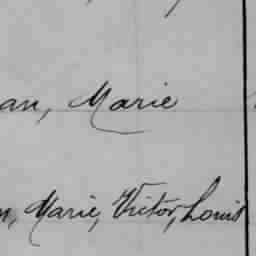 an, Marie
n, Marie, Victor, Louis